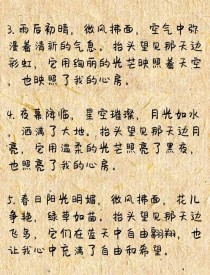 3.雨后初晴，微风拂面，空气中弥
漫着清新的气息。抬头望见那天边
彩虹，它用绚丽的光芒映照着天空
，也映照了我的心房。
4.夜幕降临，星空璀璨，月光如水
，洒满了大地。抬头望见那天边月
亮，它用温柔的光芒照亮了黑夜，
也照亮了我的心房。
5.春日阳光明媚，微风拂面，花儿
争艳，绿草如茵。抬头望见那天边
飞鸟，它们在蓝天中自由翱翔，也
让我心中充满了自由和希望。